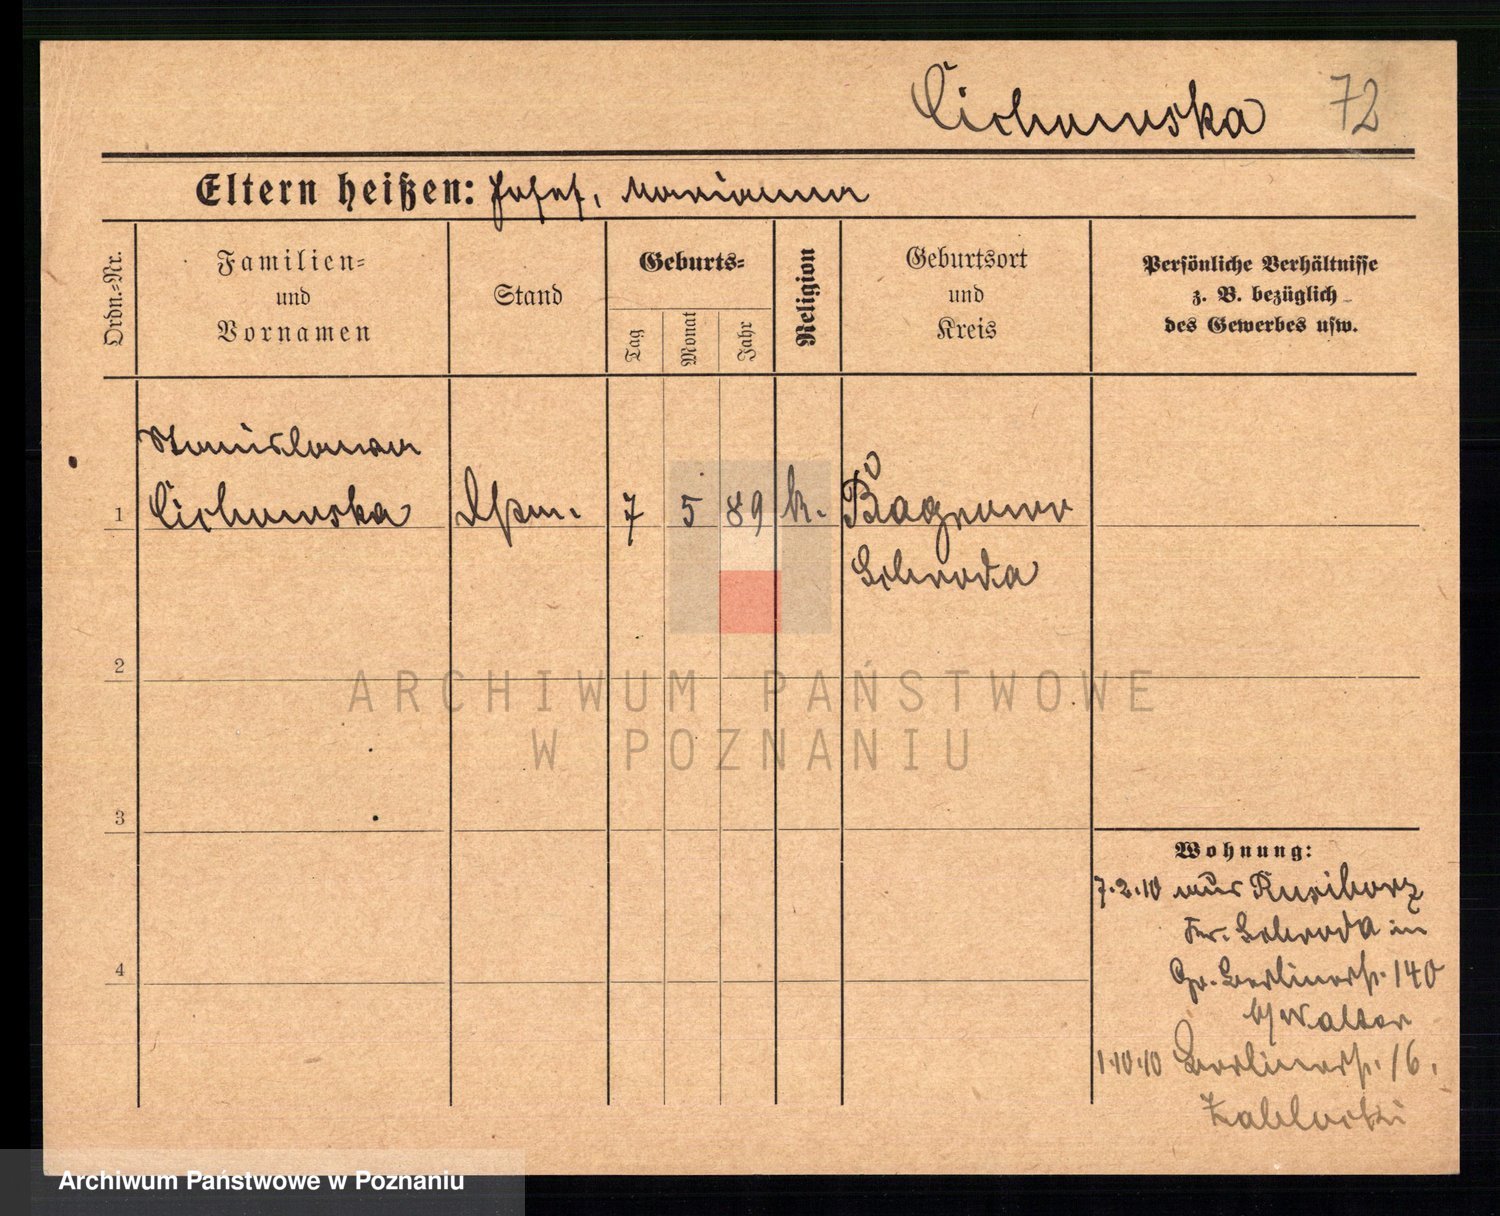 Cichowska 72
Eltern heißen: Josef, Marianna
Ordn.-Nr.
Familien-
und
Vornamen
Stand
Geburts-
Tag
Monat
Jahr
Religion
Geburtsort
und
Kreis
Persönliche Verhältnisse
z. B. bezüglich
des Gewerbes usw.
Stanislawa
1 Cichowska 7 5 89 k. Bagrowo
Schroda
2
ARCHIWUM PAŃSTWOWE
W POZNANIU
3
Wohnung:
7.2.10 aus Ruſiborz
Kr. Schroda in
4
Gr. Berlinerstr. 140
b/ Walter
1.10.10 Berlinerstr. 16.
Zablocki
Archiwum Państwowe w Poznaniu